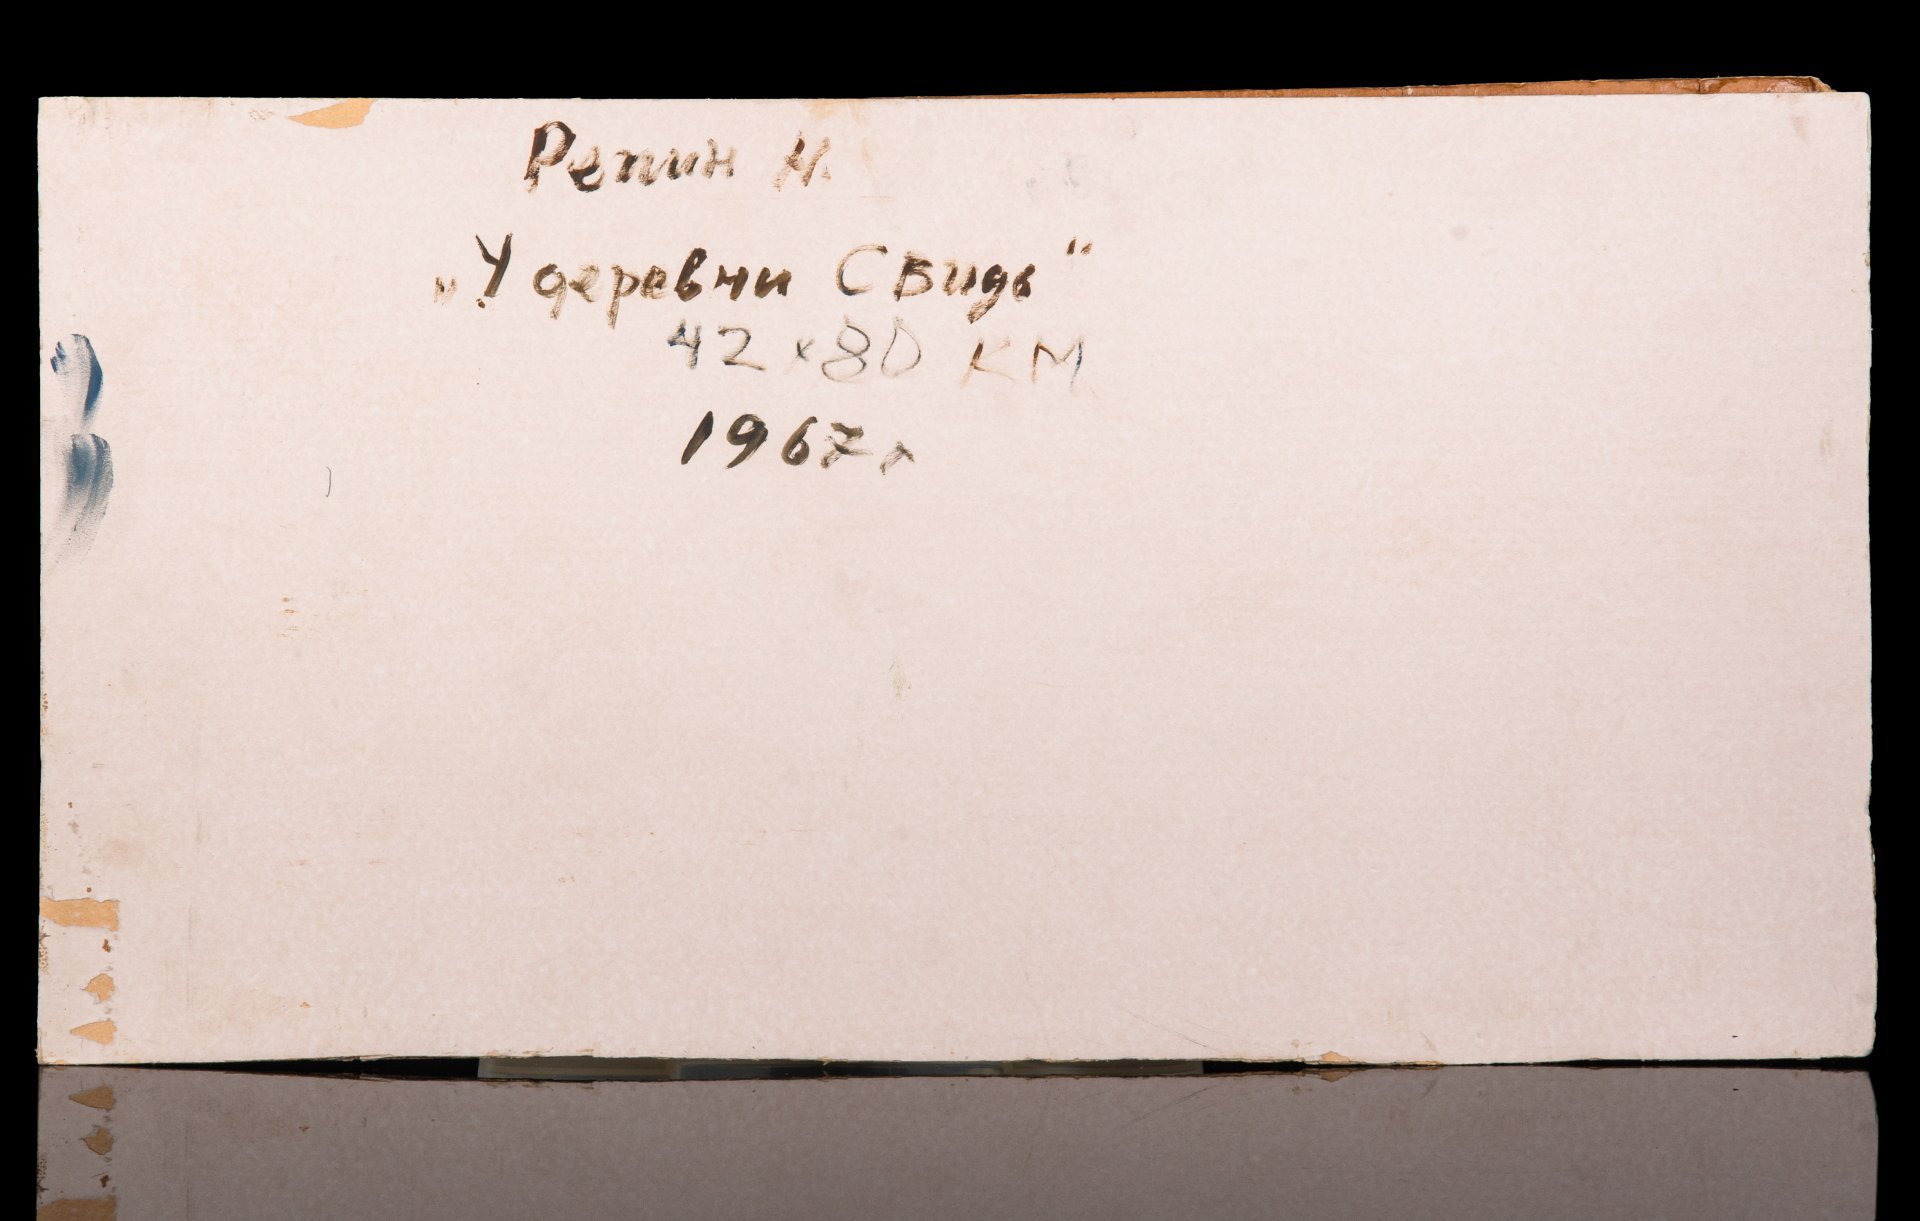 Репин Н.
„У деревни Свидь“
42x80 КМ
1967г